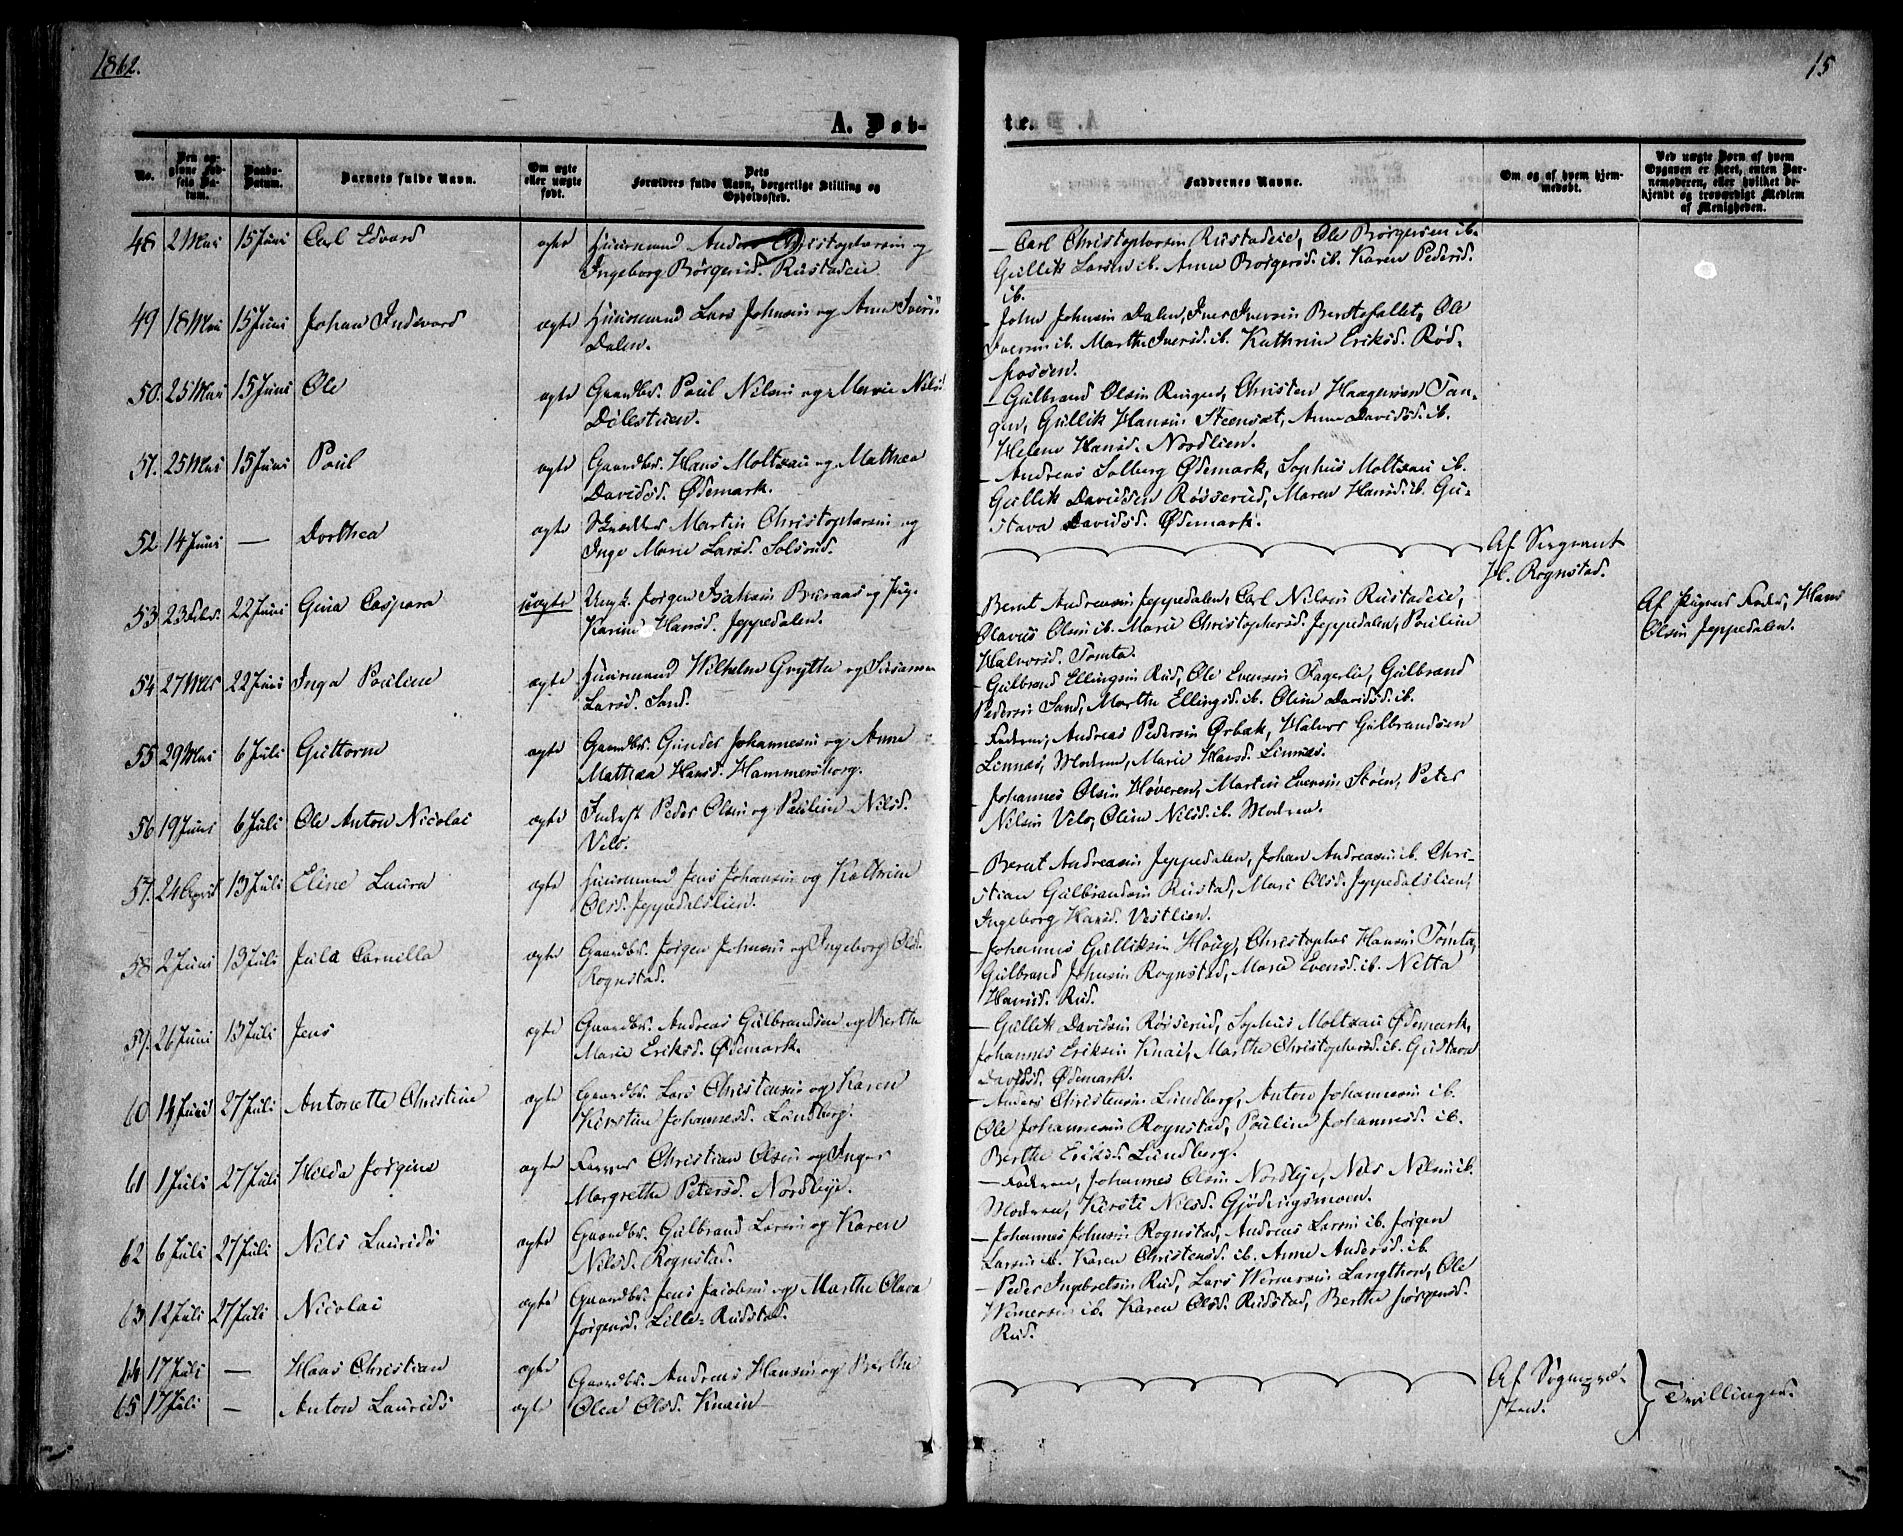 1862.
15
A. Døb-
te.
No.
Den op-
givne Fød-
sels Da-
tum.
Daabs-
Datum.
Barnets fulde Navn.
Om ægte
eller uægte
født.
Dets
Forældres fulde Navn, borgerlige Stilling og
Opholdssted.
Faddernes Navne.
Om og af hvem hjem-
medøbt.
Ved uægte Børn af hvem
Opgaven er skeet, enten Bar-
nemoderen, eller hvilket be-
kjendt og troværdigt Medlem
af Menigheden.
48 2 Mai 15 Juni Carl Edvard ægte Huusmand Anders Christophersen og
Ingeborg Børgersd. Rustadeie
- Carl Christophersen Rustadeie, Ole Børgersen ib.
Gullik Larsen ib. Anne Borgersd. ib. Karen Pedersd.
ib.
49 18 Mai 15 Juni Johan Indevard ægte Huusmand Lars Johnsen og Anne Iversd.
Dalen.
- John Johnsen Dalen, Iver Iversen Berstefallet, Ole
Iversen ib. Marthe Iversd. ib. Kathrine Eriksd. Rød-
fossen.
50. 25 Mai 15 Juni Ole ægte Gaardbr. Poul Nilsen og Marie Nilsd.
Dølestuen.
- Gulbrand Olsen Ringerud, Christen Haagensen Tan-
gen, Gullik Hansen Steensæt, Anne Davidsd. ib.
Helene Hansd. Nordlien.
51. 25 Mai 15 Juni Poul ægte Gaardbr. Hans Moltzau og Mathea
Davidsd. Ødemark.
- Andreas Solberg Ødemark, Sophus Moltzau ib.
Gullik Davidsen Røiserud, Maren Hansd. ib. Gu-
stava Davidsd. Ødemark.
52 14 Juni — Dorthea ægte Skrædder Martin Christophersen og
Inge Marie Larsd. Solsrud.
Af Sergeant
H. Rognstad.
53 23 Febr. 22 Juni Gina Caspara uægte Ungk. Jørgen Isaksen Braraas og Pig.
Karine Hansd. Jeppedalen.
- Bernt Andreasen Jeppedalen, Carl Nilsen Rustadeie,
Olavus Olsen ib. Marie Christophersd. Jeppedalen, Pouline
Halvorsd. Tomta.
Af Pigens Fader, Hans
Olsen Jeppedalen.
54 27 Mars 22 Juni Inga Pouline ægte Huusmand Wilhelm Grytte og Susanne
Larsd. Sand.
- Gulbrand Ellingsen Rud, Ole Evensen Fagerlie, Gulbrand
Pedersen Sand, Marthe Ellingsd. ib. Oline Davidsd. ib.
55 29 Mai 6 Juli Guttorm ægte Gaardbr. Gunder Johannesen og Anne
Mathea Hansd. Hammersborg.
- Faderen, Andreas Pedersen Ørbæk, Halvor Gulbrandsen
Linnæs, Moderen, Marie Hansd. Linnæs.
56 19 Juni 6 Juli Ole Anton Nicolai ægte Inderst Peder Olsen og Pauline Nilsd.
Velo.
- Johannes Olsen Høveren, Martin Evensen Støen, Peter
Nilsen Velo, Oline Nilsd. ib. Moderen.
57. 24 April 13 Juli Eline Laura ægte Huusmand Jens Johansen og Kathrine
Olsd. Jeppedalslien.
- Bernt Andreasen Jeppedalen, Johan Andreasen ib. Chri-
stian Gulbrandsen Rustad, Mari Olsd. Jeppedalslien,
Ingeborg Hansd. Vestlien.
58 2 Juni 13 Juli Jula Cornilla ægte Gaardbr. Jørgen Johnsen og Ingeborg Olsd.
Rognstad.
- Johannes Gulliksen Houg, Christopher Hansen Tomta,
Gulbrand Johnsen Rognstad, Marie Evensd. ib. Netta
Hansd. Rud.
59. 26 Juni 13 Juli Jens ægte Gaardbr. Andreas Gulbrandsen og Berthe
Marie Eriksd. Ødemark.
- Gullik Davidsen Røiserud, Sophus Moltzau Ødemark,
Johannes Eriksen Knai, Marthe Christophersd. ib. Gustava
Davidsd. Ødemark.
60 14 Juni 27 Juli Antonette Christine ægte Gaardbr. Lars Christensen og Karen
Kirstine Johannesd. Lundberg.
- Anders Christensen Lundberg, Anton Johannesen ib.
Ole Johannesen Rognstad, Pouline Johannesd. ib.
Berthe Eriksd. Lundberg.
61 1 Juli 27 Juli Hilda Jørgine ægte Farver Christian Olsen og Inger
Margrethe Petersd. Nordbye.
- Faderen, Johannes Olsen Nordbye, Nils Nilsen ib.
Moderen, Kirsti Nilsd. Gjødingsmoen.
62 6 Juli 27 Juli Nils Laurids ægte Gaardbr. Gulbrand Larsen og Karen
Nilsd. Rognstad.
- Johannes Johnsen Rognstad, Andreas Larsen ib. Jørgen
Larsen ib. Karen Christensd. ib. Anne Andersd. ib.
63 12 Juli 27 Juli Nicolai ægte Gaardbr. Jens Jacobsen og Marthe Olava
Jørgensd. Lille-Rudstad.
- Peder Ingebretsen Rud, Lars Wernersen Langthon, Ole
Wernersen ib. Karen Olsd. Rudstad, Berthe Jørgensd.
Rud.
64 17 Juli — Hans Christian ægte Gaardbr. Andreas Hansen og Berthe
65 17 Juli — Anton Laurids ægte Olea Olsd. Knain
Af Sognepræ-
sten.
Tvillinger.